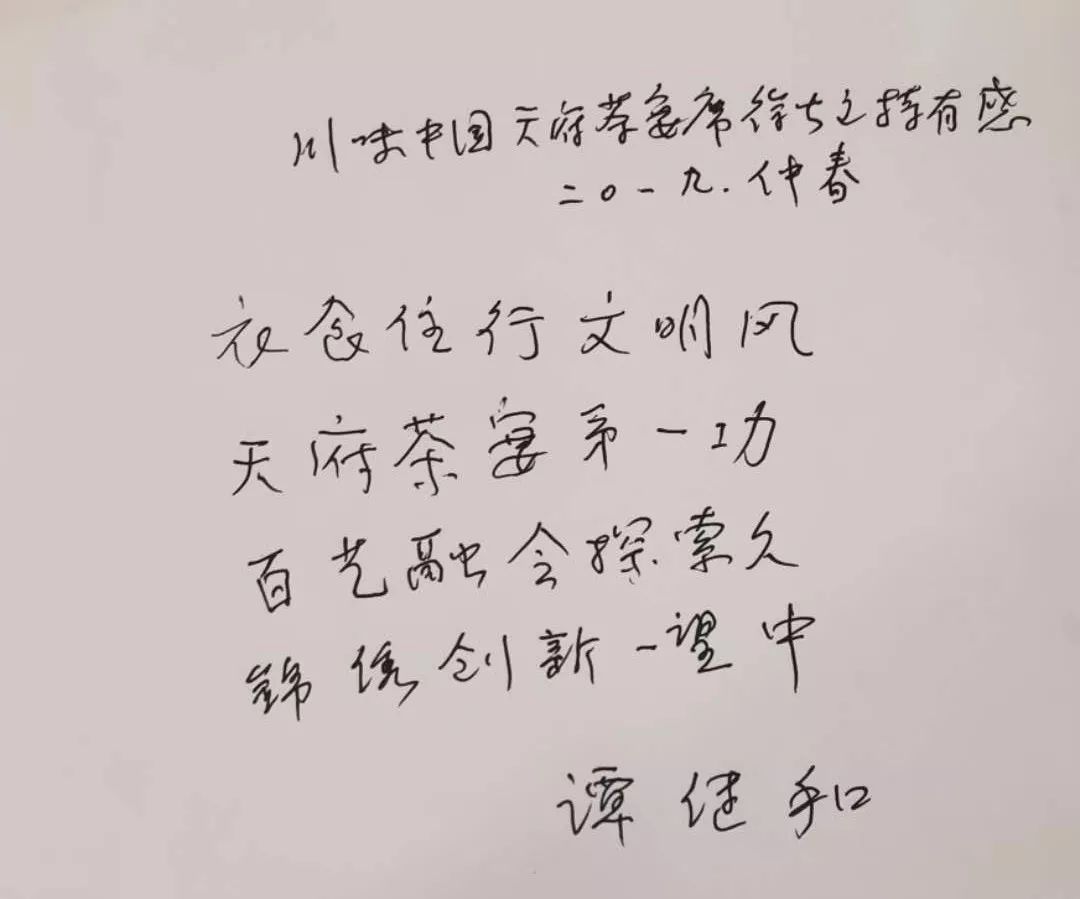 川味中国天府茶宴席徐士之持有感
二〇一九.仲春
衣食住行文明风
天府茶宴第一功
百艺融会探索久
锦绣创新一望中
谭继和